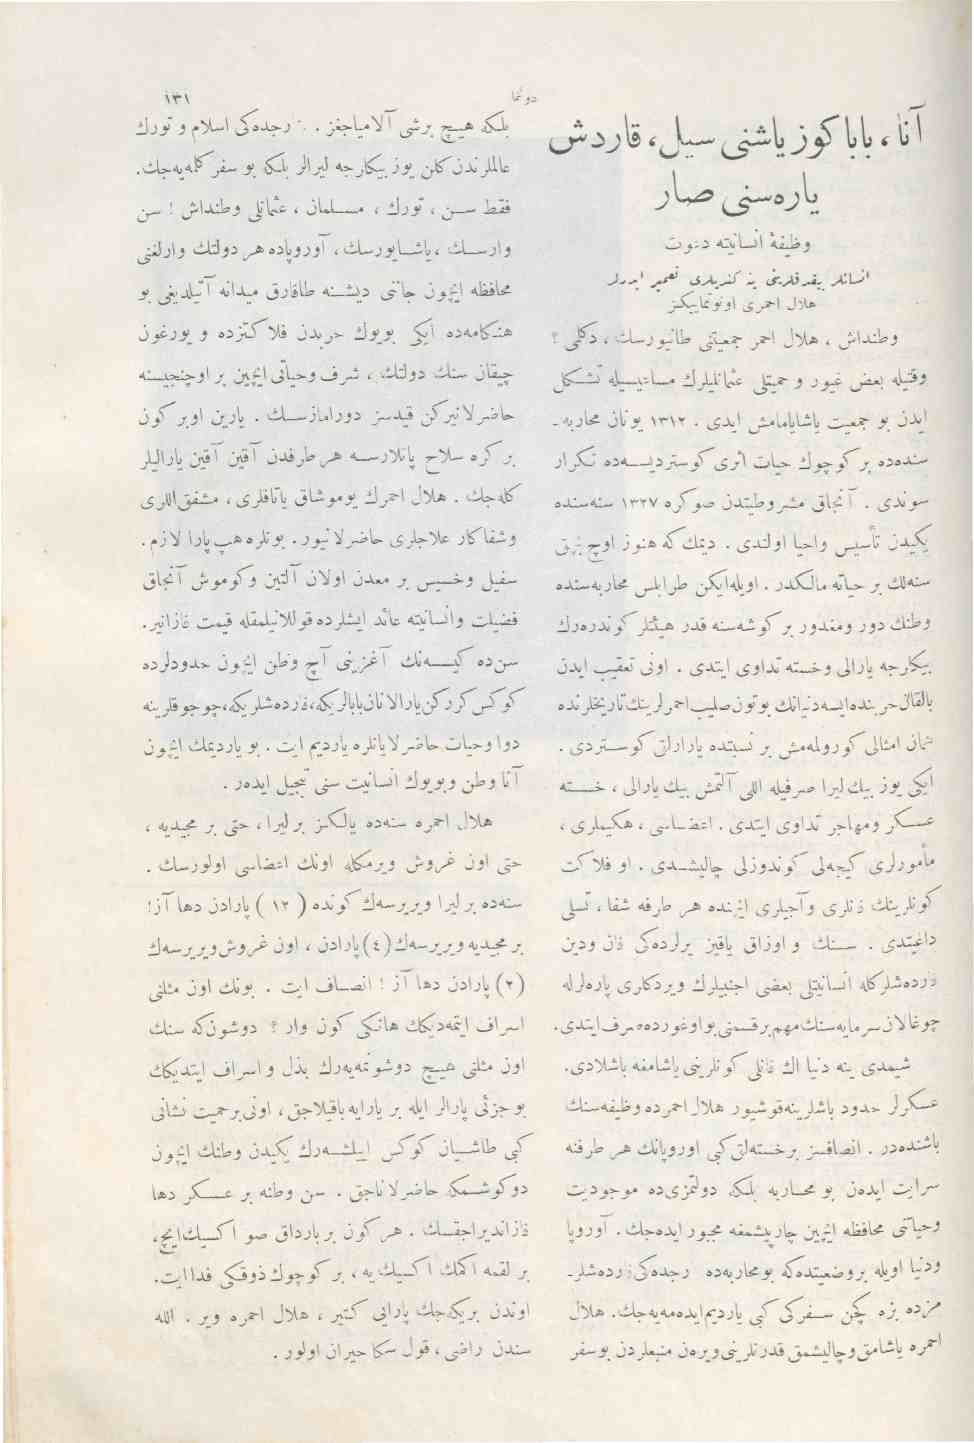 دونما
١٣١
آنا، بابا کوز یاشنی سیل، قاردش
یاره‌سنی صار
وظیفهٔ انسانیته دعوت
انسانلر ییقدقلرینی ینه کندیلری تعمیر ایدرلر
هلال احمری اونوتمایکز
وطنداش ، هلال احمر جمعیتنی طانیورسك ، دکلمی ؟
وقتیله بعض غیور و حمیتلی عثمانلیلرك مساعیسیله تشکل
ایدن بو جمعیت یاشایامامش ایدی . ١٣١٢ یونان محاربه‌ـ
سنده‌ده بر کوچوك حیات اثری کوستردیسه‌ده تکرار
سوندی . آنجاق مشروطیتدن صوکره ١٣٢٧ سنه‌سنده
یکیدن تأسیس واحیا اولندی . دیمك که هنوز اوچ بچق
سنه‌لك بر حیاته مالکدر . اویله‌ایکن طرابلس محاربه‌سنده
وطنك دور ومغدور بر کوشه‌سنه قدر هیئتلر کوندره‌رك
بیکلرجه یارالی وخسته تداوی ایتدی . اونی تعقیب ایدن
بالقان حربنده‌ایسه دنیانك بوتون صلیب احمرلرینك تاریخلرنده
امثالی کورولمه‌مش بر نسبتده یارارلق کوستردی .
ایکی یوز بیك لیرا صرفیله اللی آلتمش بیك یارالی ، خسته
عسکر ومهاجر تداوی ایتدی . اعضاسی ، هکیملری ،
مأمورلری کیجه‌لی کوندوزلی چالیشدی . او فلاکت
کونلرینك قانلری وآجیلری ایچنده هر طرفه شفا ، تسلی
داغیتدی . سنك و اوزاق یاقین یرلرده‌کی قان ودین
قرده‌شلرکله انسانیتلی بعضی اجنبیلرك ویردکلری پاره‌لرله
چوغالان سرمایه‌سنك مهم بر قسمنی بو اوغورده صرف ایتدی .
شیمدی ینه دنیا اك قانلی کونلرینی یاشامغه باشلادی .
عسکرلر حدود باشلرینه قوشیور هلال احمرده وظیفه‌سنك
باشنده‌در . انصافسز بر خسته‌لق کبی اوروپانك هر طرفنه
سرایت ایده‌ن بو محاربه بلکه دولتمزی‌ده موجودیت
وحیاتنی محافظه ایچین چارپیشمغه مجبور ایده‌جك . آوروپا
ودنیا اویله بر وضعیتده‌که بو محاربه‌ده رجده‌کی قرده‌شلرـ
مزده بزه کچن سفرکی کبی یاردیم ایده‌مه‌یه‌جك . هلال
احمره یاشامق وچالیشمق قدرتلرینی ویره‌ن منبعلردن بو سفر
بلکه هیچ بر شی آلامیاجغز . رجده‌کی اسلام و تورك
عالملرندن کلن یوز بیکلرجه لیرالر بلکه بو سفر کلمه‌یه‌جك .
فقط سن ، تورك ، مسلمان ، عثمانلی وطنداش ! سن
وارسك ، یاشایورسك ، آوروپاده هر دولتك وارلغنی
محافظه ایچون جاننی دیشنه طاقارق میدانه آتیلدیغی بو
هنکامه‌ده ایکی بویوك حربدن فلاکتزده و یورغون
چیقان سنك دولتك ، شرف وحیاتی ایچین بر اوچنجیسنه
حاضرلانیرکن قیدسز دورامازسك . یارین اوبر کون
بر کره سلاح پاتلارسه هر طرفدن آقین آقین یارالیلر
کله‌جك . هلال احمرك یوموشاق یاتاقلری ، مشفق اللری
وشفاکار علاجلری حاضرلانیور . بونلره هپ پارا لازم .
سفیل وخسیس بر معدن اولان آلتین وکوموش آنجاق
فضیلت وانسانیته عائد ایشلرده قوللانیلمقله قیمت قازانیر .
سن‌ده کیسه‌نك آغزینی آچ وطن ایچون حدودلرده
کوکس کررکن یارالانان بابالریکه ، قرده‌شلریکه ، چوجوقلرینه
دوا وحیات حاضرلایانلره یاردیم ایت . بو یاردیمك ایچون
آنا وطن وبویوك انسانیت سنی تبجیل ایده‌ر .
هلال احمره سنه‌ده یالکز بر لیرا ، حتی بر مجیدیه ،
حتی اون غروش ویرمکله اونك اعضاسی اولورسك .
سنه‌ده بر لیرا ویریرسه‌ك کونده ( ١٢ ) پارادن دها آز !
بر مجیدیه ویریرسه‌ك (٤) پارادن ، اون غروش ویریرسه‌ك
(٢) پارادن دها آز ! انصاف ایت . بونك اون مثلنی
اسراف ایتمه‌دیکك هانکی کون وار ؟ دوشون که سنك
اون مثلنی هیچ دوشونمه‌یه‌رك بذل و اسراف ایتدیکك
بو جزئی پارالر ایله بر یارایه باقیلاجق ، اونی بر حمیت نشانی
کبی طاشیان کوکس اییلشه‌رك یکیدن وطنك ایچون
دوکوشمکه حاضرلاناجق . سن وطنه بر عسکر دها
قازاندیراجقسك . هر کون بر بارداق صو اکسیك ایچ ،
بر لقمه اکمك اکسیك یه ، بر کوچوك ذوقکی فدا ایت .
اوندن بریکه‌جك پارایی کتیر ، هلال احمره ویر . الله
سندن راضی ، قول سکا حیران اولور .